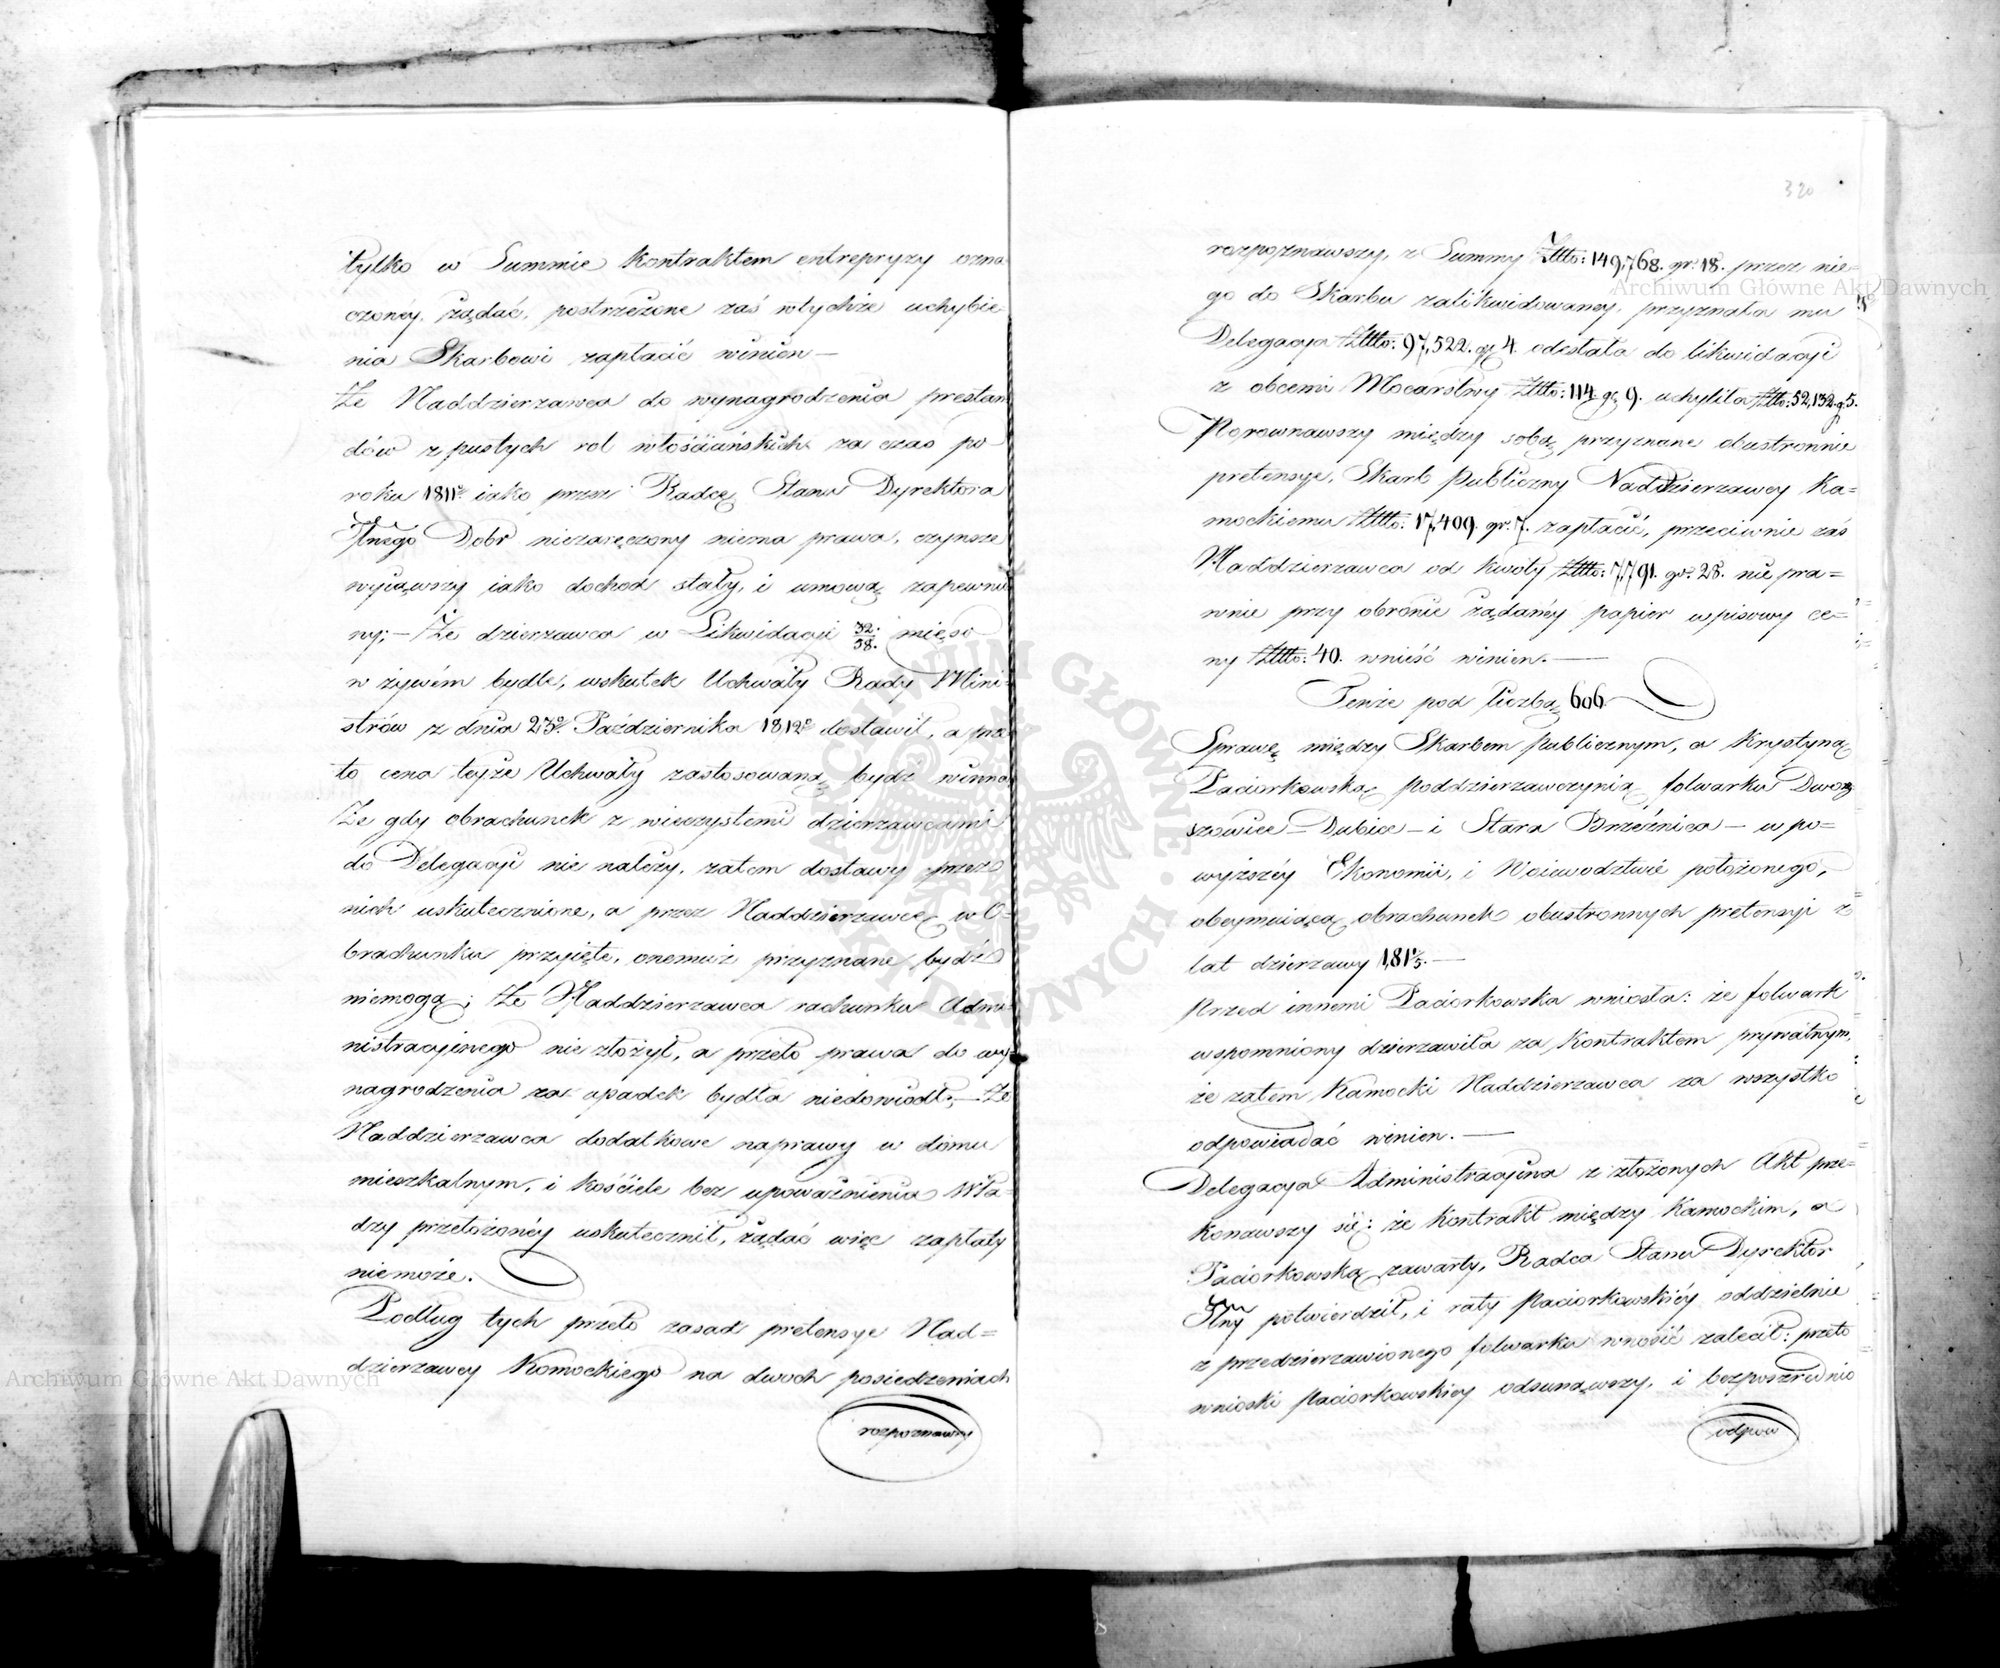 tylko w Summie kontraktem entrepryzy ozna
czonéy, żądać, postrzeżone zaś wtychże uchybie
nia Skarbowi zapłacić winien —
Że Naddzierzawca do wynagrodzenia prestan
dów z pustych rol włościańskich za czas po
roku 1811º iako przez Radcę Stanu Dyrektora
Jlnego Dobr niezaręczony niema prawa, czynsze
wyiąwszy iako dochod stały, i umową zapewnio
ny; — Że dzierzawca w Likwidacji 32/38. mięso
w żywém bydle, wskutek Uchwały Rady Mini-
strów z dnia 23º Października 1812º dostawił, a prze
to cena teyże Uchwały zastosowaną bydź winna
Że gdy obrachunek z wieczystemi dzierzawcami
do Delegacji nie należy, zatem dostawy przez
nich uskutecznione, a przez Naddzierzawcę w O-
brachunku przyięte, onemuż przyznane bydź
niemogą; Że Naddzierzawca rachunku Admi
nistracyinego nie złożył, a przeto prawa do wy-
nagrodzenia za upadek bydła niedowiodł; — Że
Naddzierzawca dodatkowe naprawy w domu
mieszkalnym, i kościele bez upoważnienia Wła-
dzy przełożonéy uskutecznił, żądać więc zapłaty
niemoże.
Podług tych przeto zasad pretensye Nad=
dzierzawcy Kamockiego na dwoch posiedzeniach
rozpoznawszy
320
rozpoznawszy, z Summy Złłto: 149,768. gr: 18. przez nie=
go do Skarbu zalikwidowaney, przyznała mu
Delegacya Złłto: 97,522. gr 4. odesłała do likwidacji
z obcemi Mocarstwy Złłto: 114 gr 9. uchyliła Złłto: 52,132. g 5.
Porownawszy między sobą przyznane obustronnie
pretensye, Skarb Publiczny Naddzierzawcy Ka=
mockiemu Złłto: 17,409. gr. 7. zapłacić, przeciwnie zaś
Naddzierzawca od kwoty Złłto: 7,791. gr: 28. nie pra=
wnie przy obronie żądanéy papier wpisowy ce=
ny Złłto: 40. wnieść winien. —
Tenże pod liczbą 606.
Sprawę między Skarbem Publicznym, a Krystyną
Paciorkowską Poddzierzawczynią folwarku Dwor
szowice — Dubice — i Stara Brzeźnica — w po=
wyższéy Ekonomii, i Woiewodztwie położonego,
obeymuiącą obrachunek obustronnych pretensji z
lat dzierzawy 181⅔. —
Przed innemi Paciorkowska wniosła: że folwark
wspomniony dzierzawiła za Kontraktem prywatnym,
że zatem Kamocki Naddzierzawca za wszystko
odpowiadać winien. —
Delegacya Administracyina z złożonych Akt prze=
konawszy się: że Kontrakt między Kamockim, a
Paciorkowską zawarty, Radca Stanu Dyrektor
Jlny potwierdził, i raty Paciorkowskiéy oddzielnie
z przedzierzawionego folwarku wnosić zalecił: przeto
wnioski Paciorkowskiey odsunąwszy, i bezpośrednio
odpow
Archiwum Główne Akt Dawnych
Archiwum Główne Akt Dawnych
ARCHIWUM GŁÓWNE AKT DAWNYCH